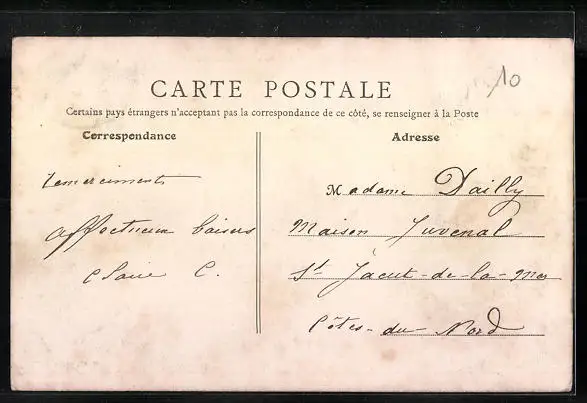 10
CARTE POSTALE
Certains pays étrangers n'acceptant pas la correspondance de ce côté, se renseigner à la Poste
Correspondance
Remerciements
affectueux baisers
Claire C.
Adresse
Madame Dailly
Maison Juvenal
St Jacut-de-la-Mer
Côtes-du-Nord